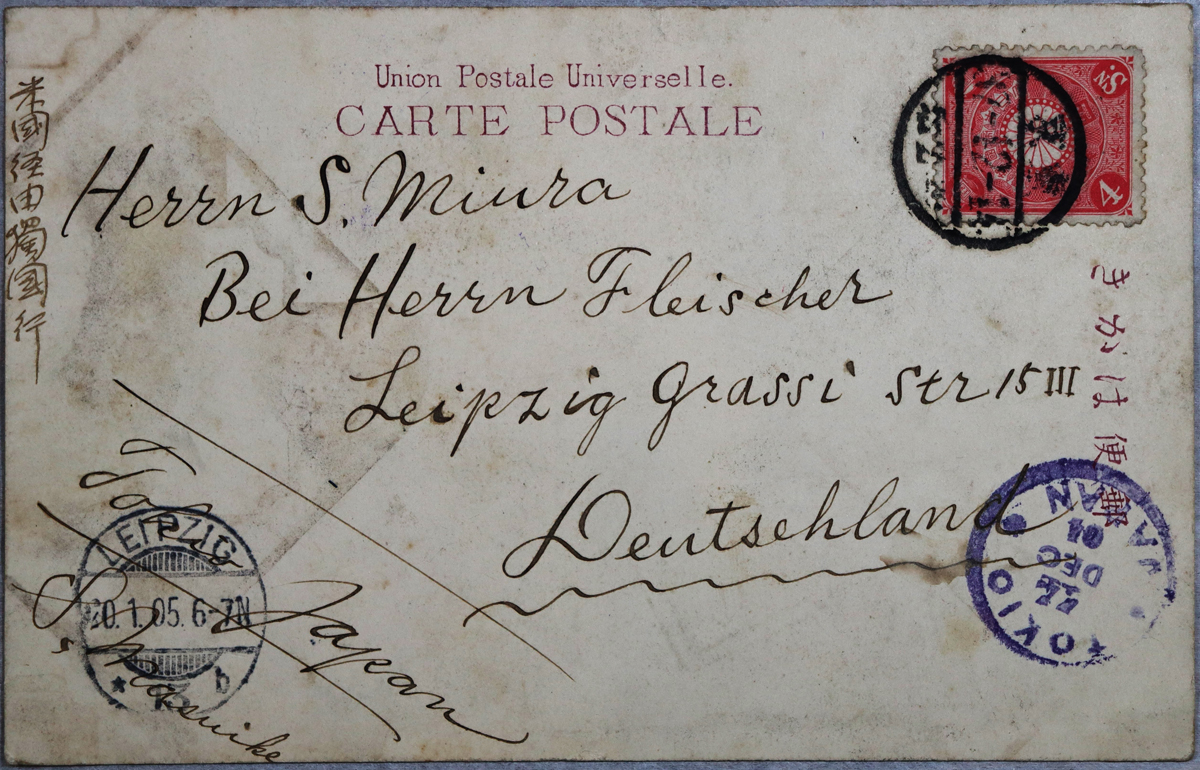 Union Postale Universelle.
CARTE POSTALE
米國経由獨国行
Herrn S. Miura
Bei Herrn Fleischer
Leipzig Grassi Str 15 III
Deutschland
きかは便郵
4
Sn.
TOKIO JAPAN
24
DEC
04
LEIPZIG
20.1.05.6-7N
b
Japan